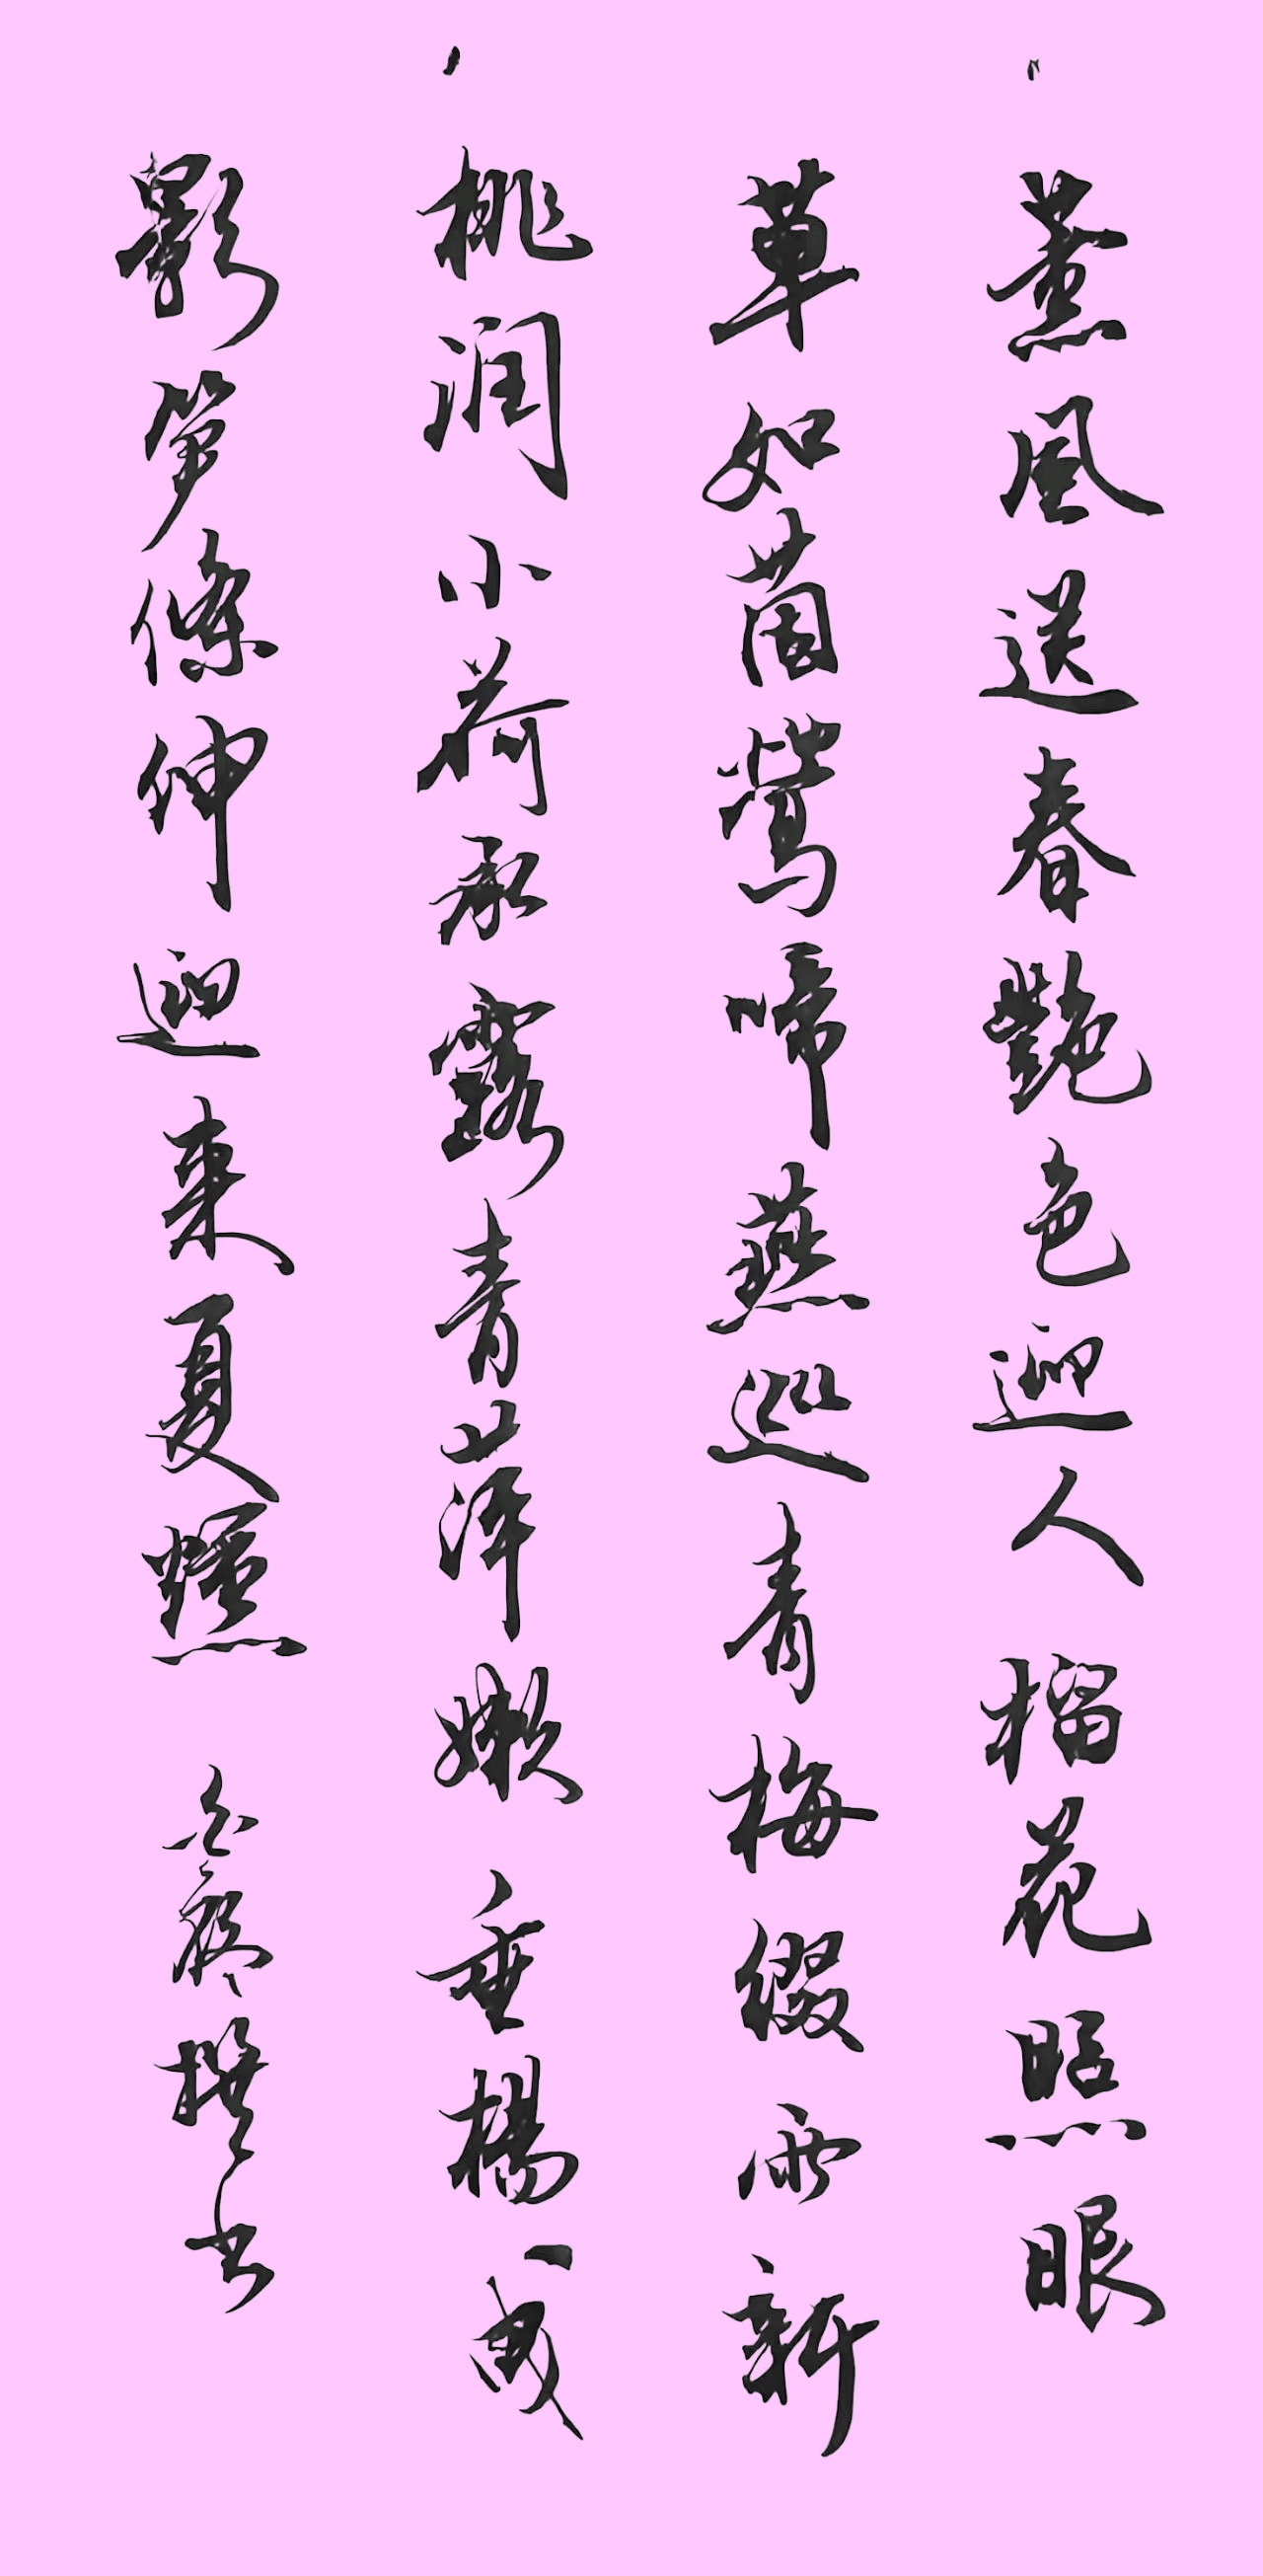 薰風送春艷色迎人榴花照眼
草如茵鶯啼燕巡青梅綴雨新
桃潤小荷承露青萍嫩垂楊曳
影筍條伸迎來夏熏
撰书